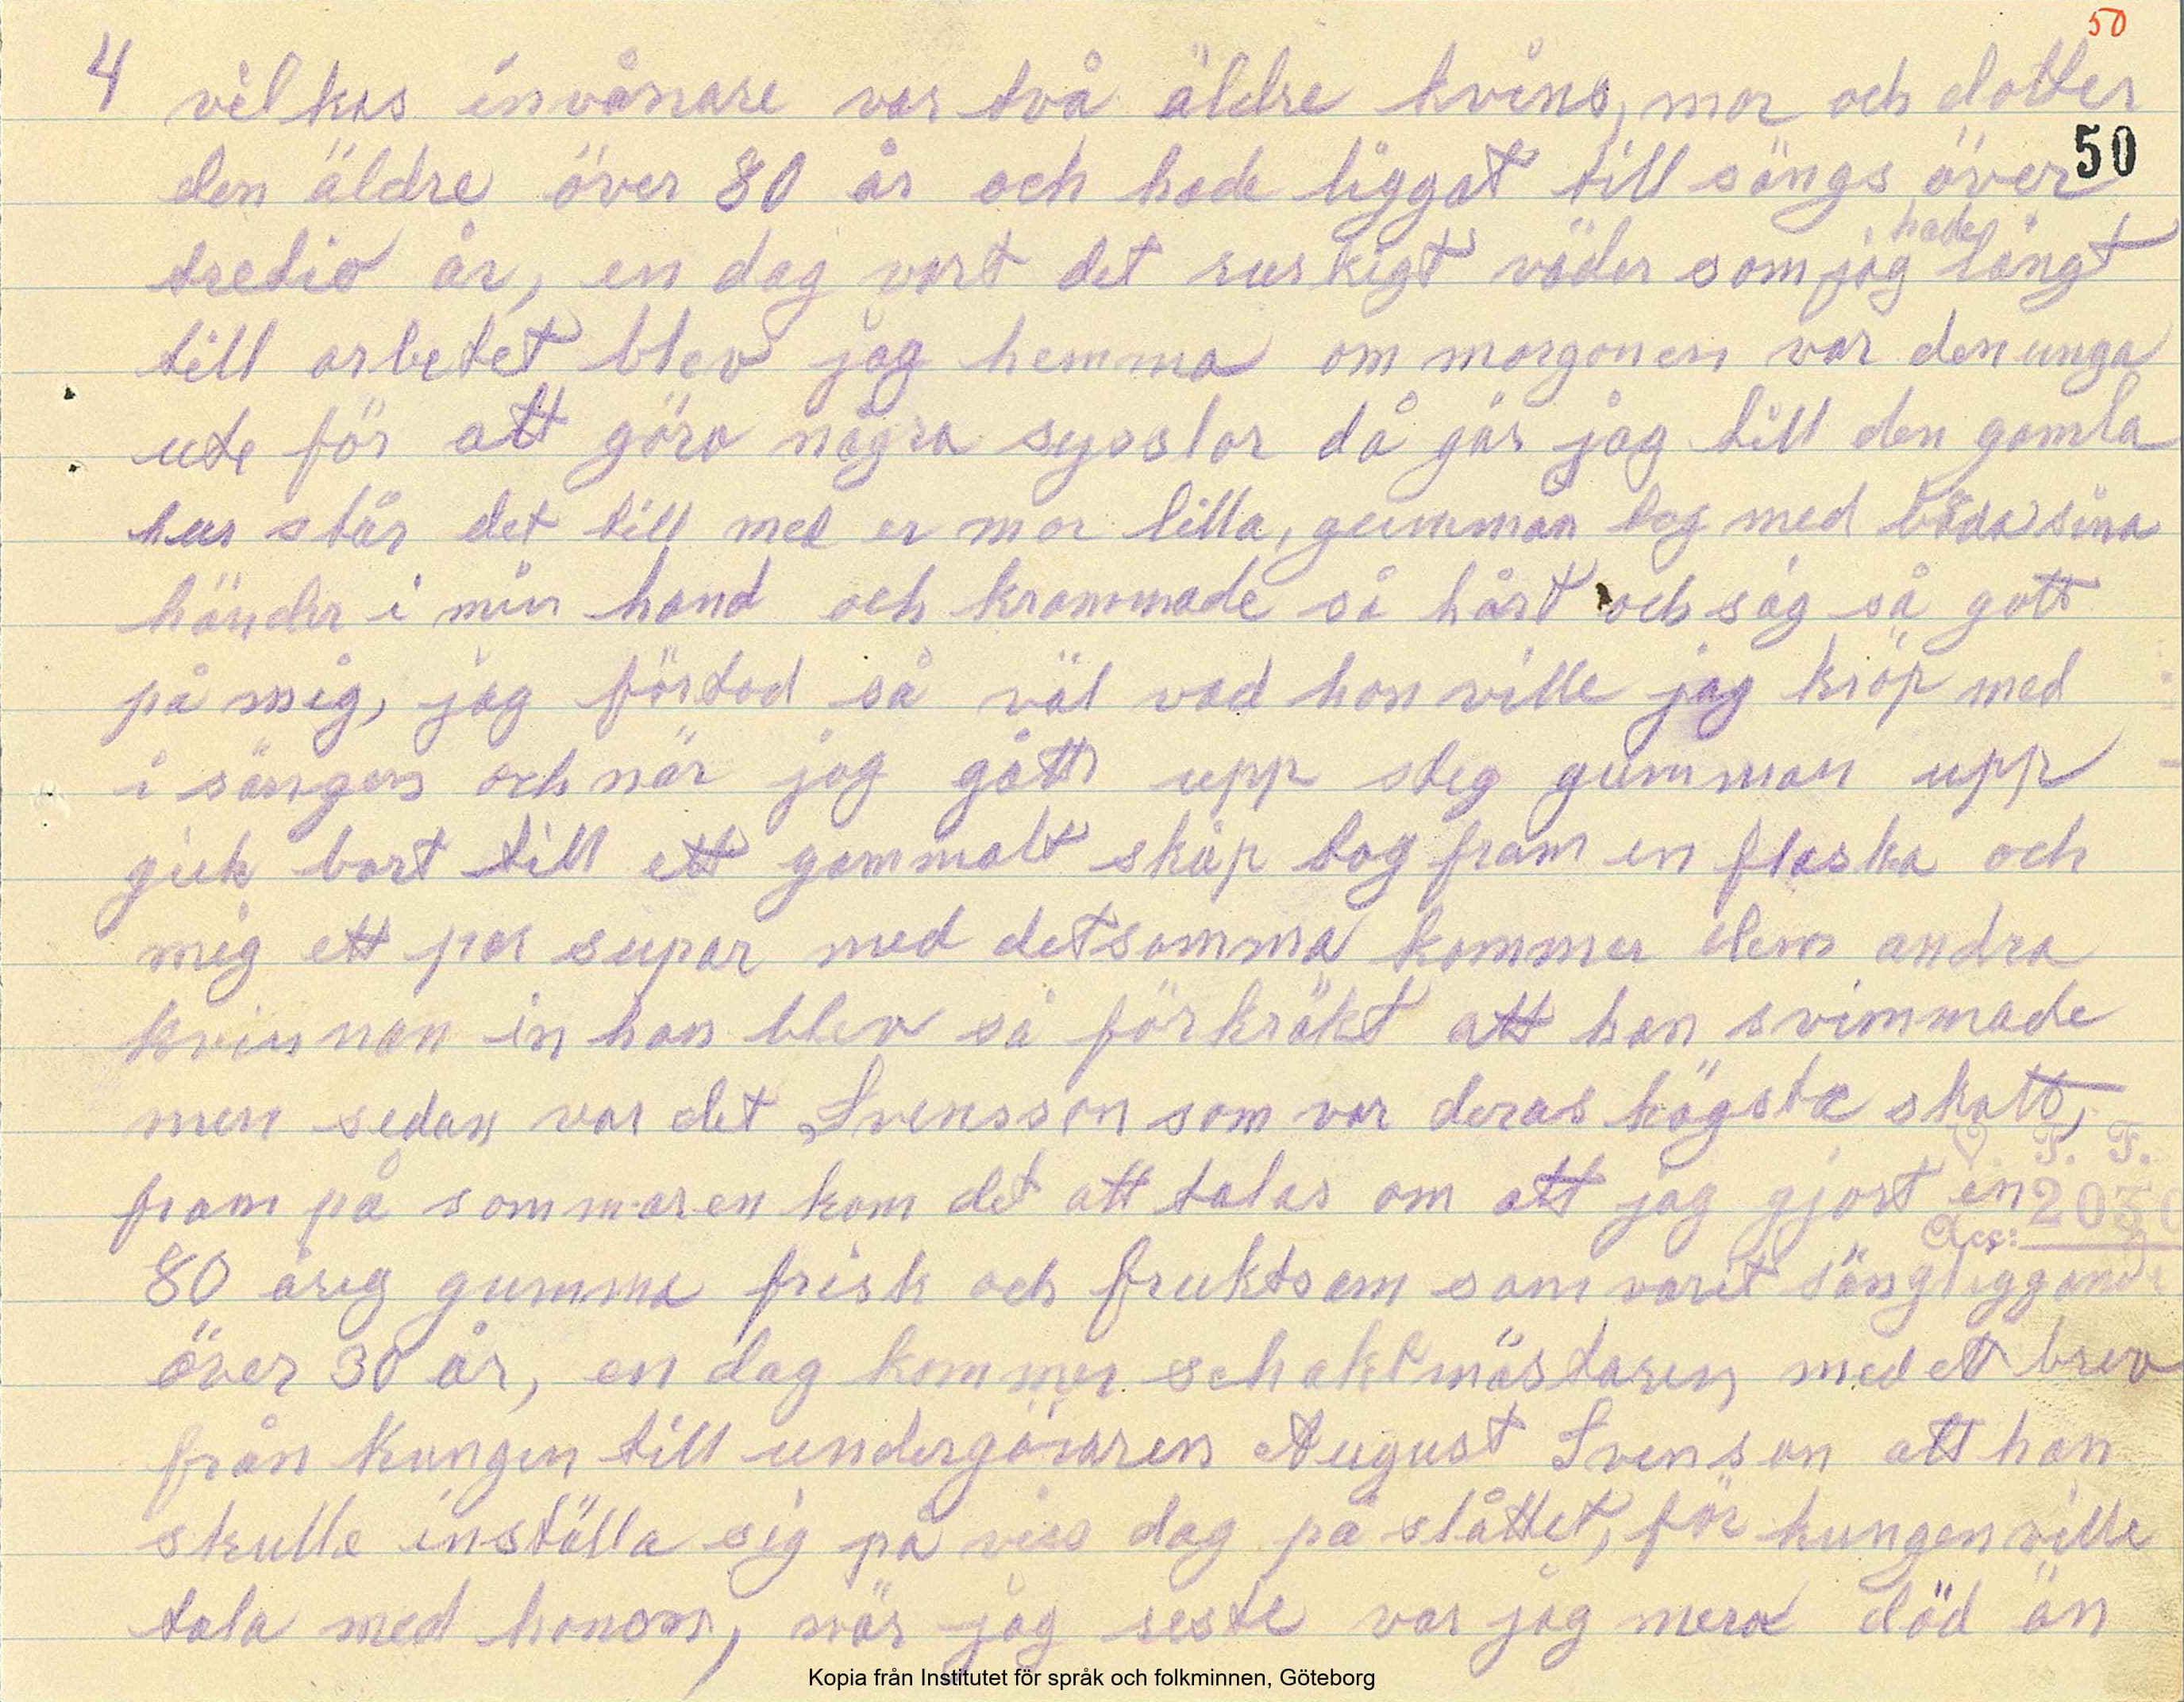 50
4 vilkas invånare var två äldre kvins, mor och dotter
50
den äldre över 80 år och hade liggat till sängs över
hade
tretio år, en dag vart det ruskigt väder som jag långt
till arbetet blev jag hemma om morgonen var den unga
ute för att göra några sysslor då går jag till den gamla
hur står det till med er mor lilla, gumman tog med båda sina
händer i min hand och krammade så hårt och såg så gott
på mig, jag förstod så väl vad hon ville jag kröp med
i sängen och när jag gått upp steg gumman upp
gick bort till ett gammalt skåp tog fram en flaska och
mig ett par supar med detsamma kommer den andra
kvinnan in hon blev så förkräkt att hon svimmade
men sedan var det Svensson som var deras högsta skatt,
V. F. F.
fram på sommaren kom det att talas om att jag gjort en
Acc: 2030
80 årig gumma frisk och fruktsam som varit sängliggande
över 30 år, en dag kommer schaktmästaren med ett brev
från Kungen till undergöraren August Svenson att han
skulle inställa sig på viss dag på slåttet, för kungen ville
tala med honom, när jag reste var jag mera död än
Kopia från Institutet för språk och folkminnen, Göteborg